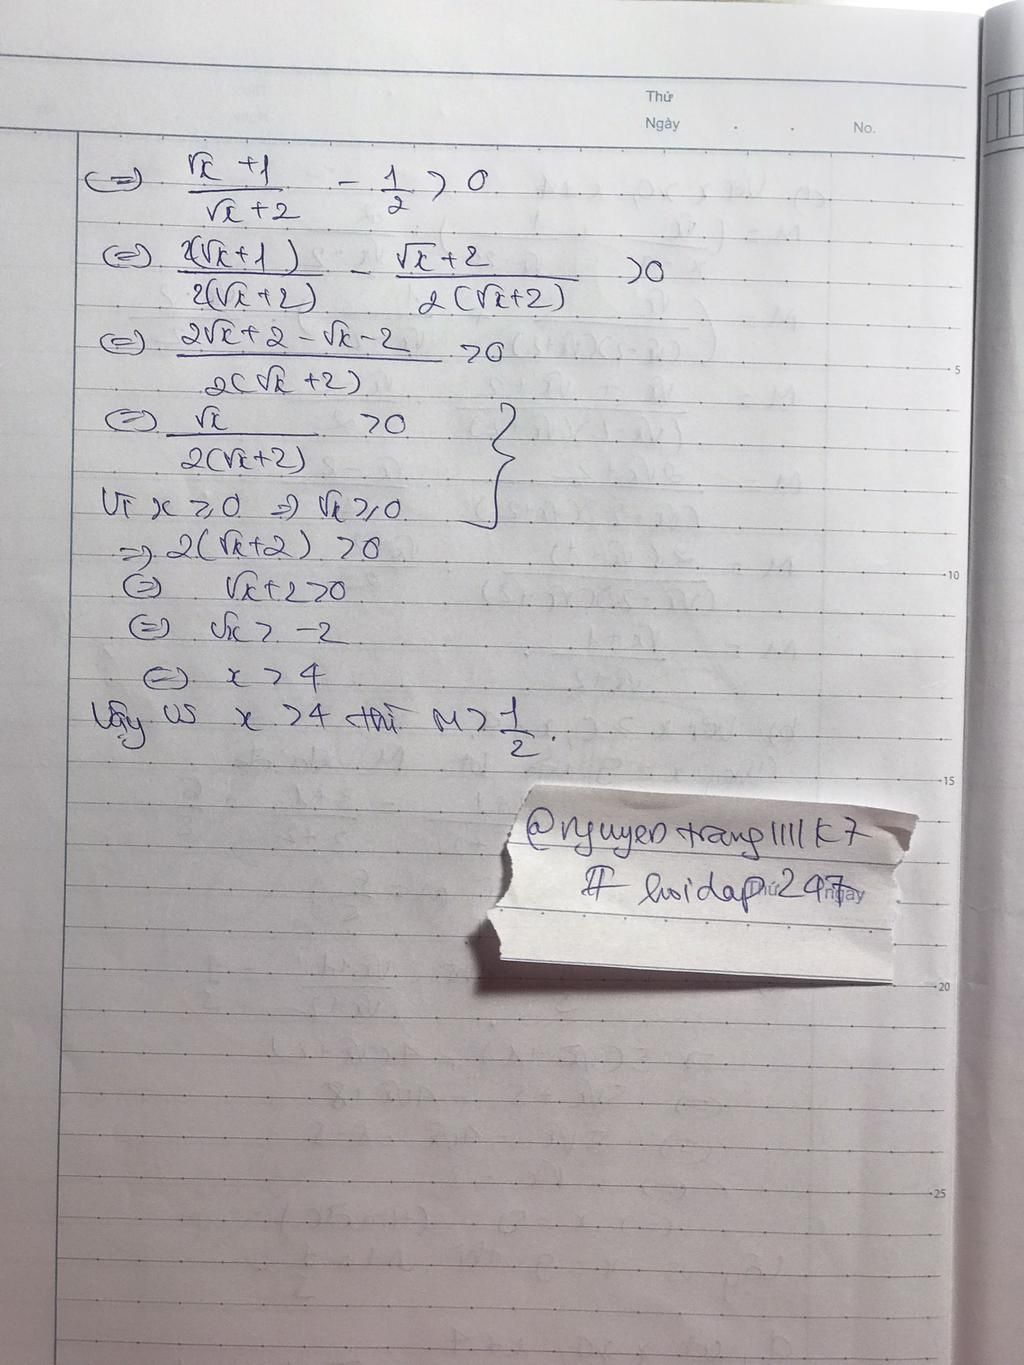 Thứ
Ngày . . No.
⇔ (√x + 1)/(√x + 2) - 1/2 > 0
⇔ 2(√x + 1)/2(√x + 2) - (√x + 2)/2(√x + 2) > 0
⇔ (2√x + 2 - √x - 2)/2(√x + 2) > 0
⇔ √x/2(√x + 2) > 0 }
Vì x ≥ 0 ⇒ √x ≥ 0
⇒ 2(√x + 2) > 0
⇔ √x + 2 > 0
⇔ √x > -2
⇔ x > 4
Vậy vs x > 4 thì M > 1/2.
5
10
15
20
25
@nguyentrang1111k7
# hoidap247
Thứ ngày